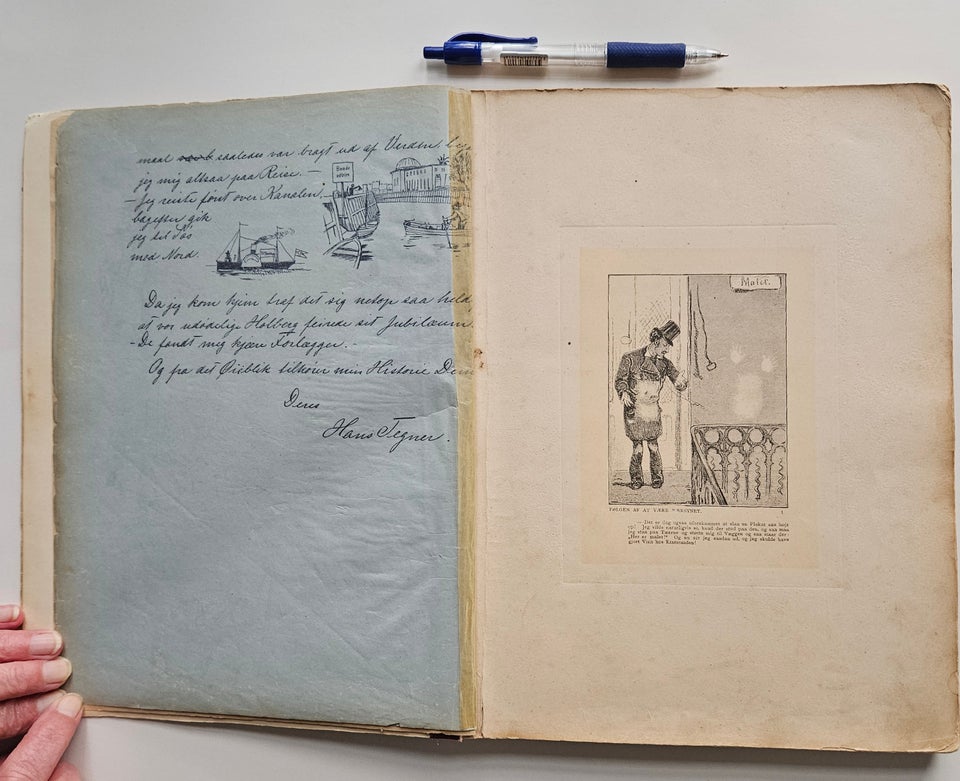 maal saaledes var bragt ud af Verden, be
jeg mig altsaa paa Reise. —
- Jeg reiste først over Kanalen.
bagefter gik
jeg til Søs
med Nord.
Da jeg kom hjem traf det sig netop saa held
at vor udødelige Holberg feirede sit Jubilæum.
- De fandt mig kjære Forlægger. -
Og fra det Øieblik tilhører min Historie Dem
Deres
Hans Tegner.
Malet.
FØLGEN AF AT VÆRE NÆRSYNET.
1.
— Det er dog ogsaa uforskammet at slaa en Plakat saa højt
op! Jeg vilde naturligvis se, hvad der stod paa den, og saa maa
jeg staa paa Tæerne og støtte mig til Væggen og saa staar der
„Her er malet!“ Og nu ser jeg saadan ud, og jeg skulde have
gjort Visit hos